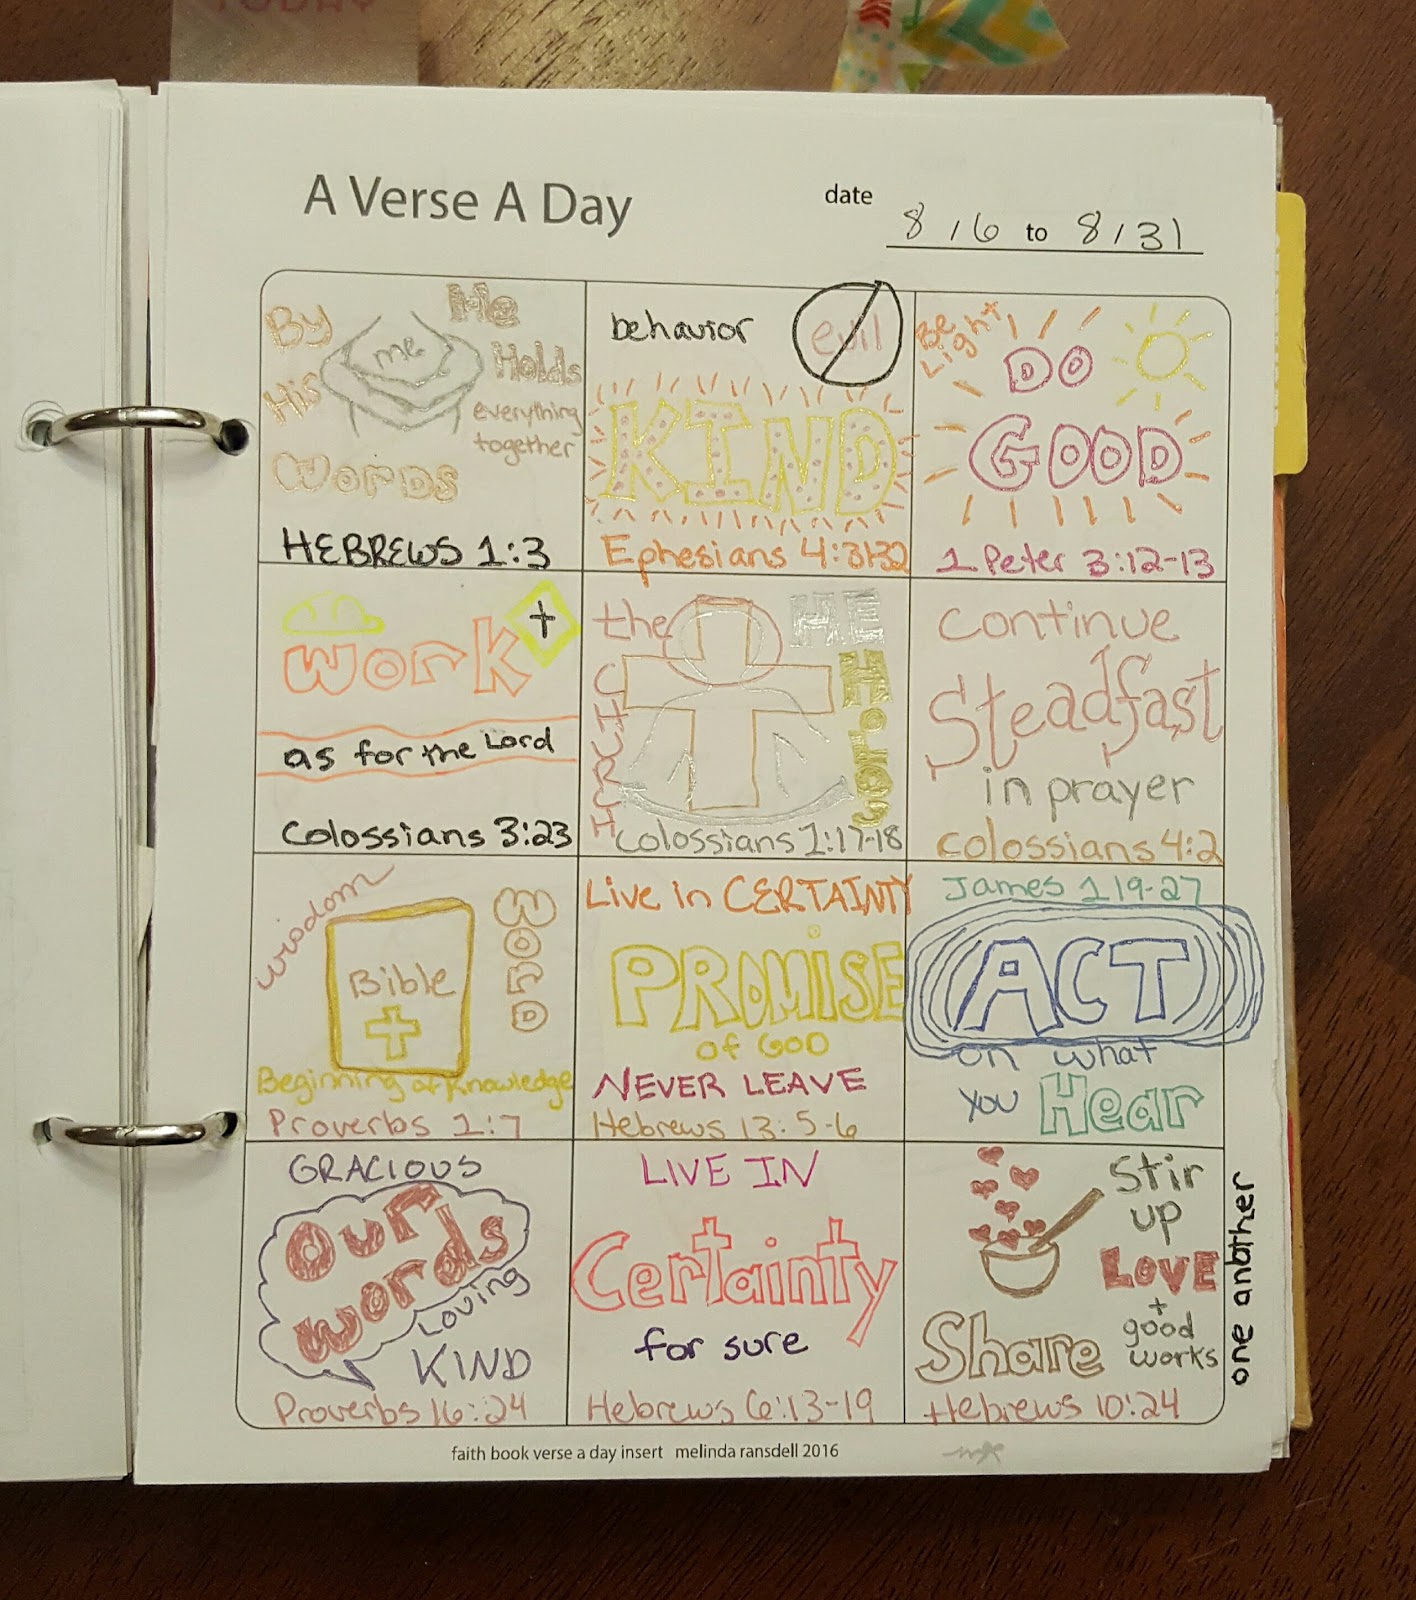 TODAY
A Verse A Day
date
8/6 to 8/31
By His Words
me
He Holds
everything
together
HEBREWS 1:3
behavior
evil
KIND
Ephesians 4:31-32
Be Light
DO
GOOD
1 Peter 3:12-13
work
as for the Lord
Colossians 3:23
the
CHURCH
HE
HOLDS
Colossians 1:17-18
continue
Steadfast
in prayer
Colossians 4:2
wisdom
Bible
WORD
Beginning of Knowledge
Proverbs 1:7
Live in CERTAINTY
PROMISE
of GOD
NEVER LEAVE
Hebrews 13:5-6
James 1 19-27
ACT
on what
you Hear
GRACIOUS
Our
words
Loving
KIND
Proverbs 16:24
LIVE IN
Certainty
for sure
Hebrews 6:13-19
Stir
up
LOVE
+
good
works
Share
one another
Hebrews 10:24
faith book verse a day insert melinda ransdell 2016